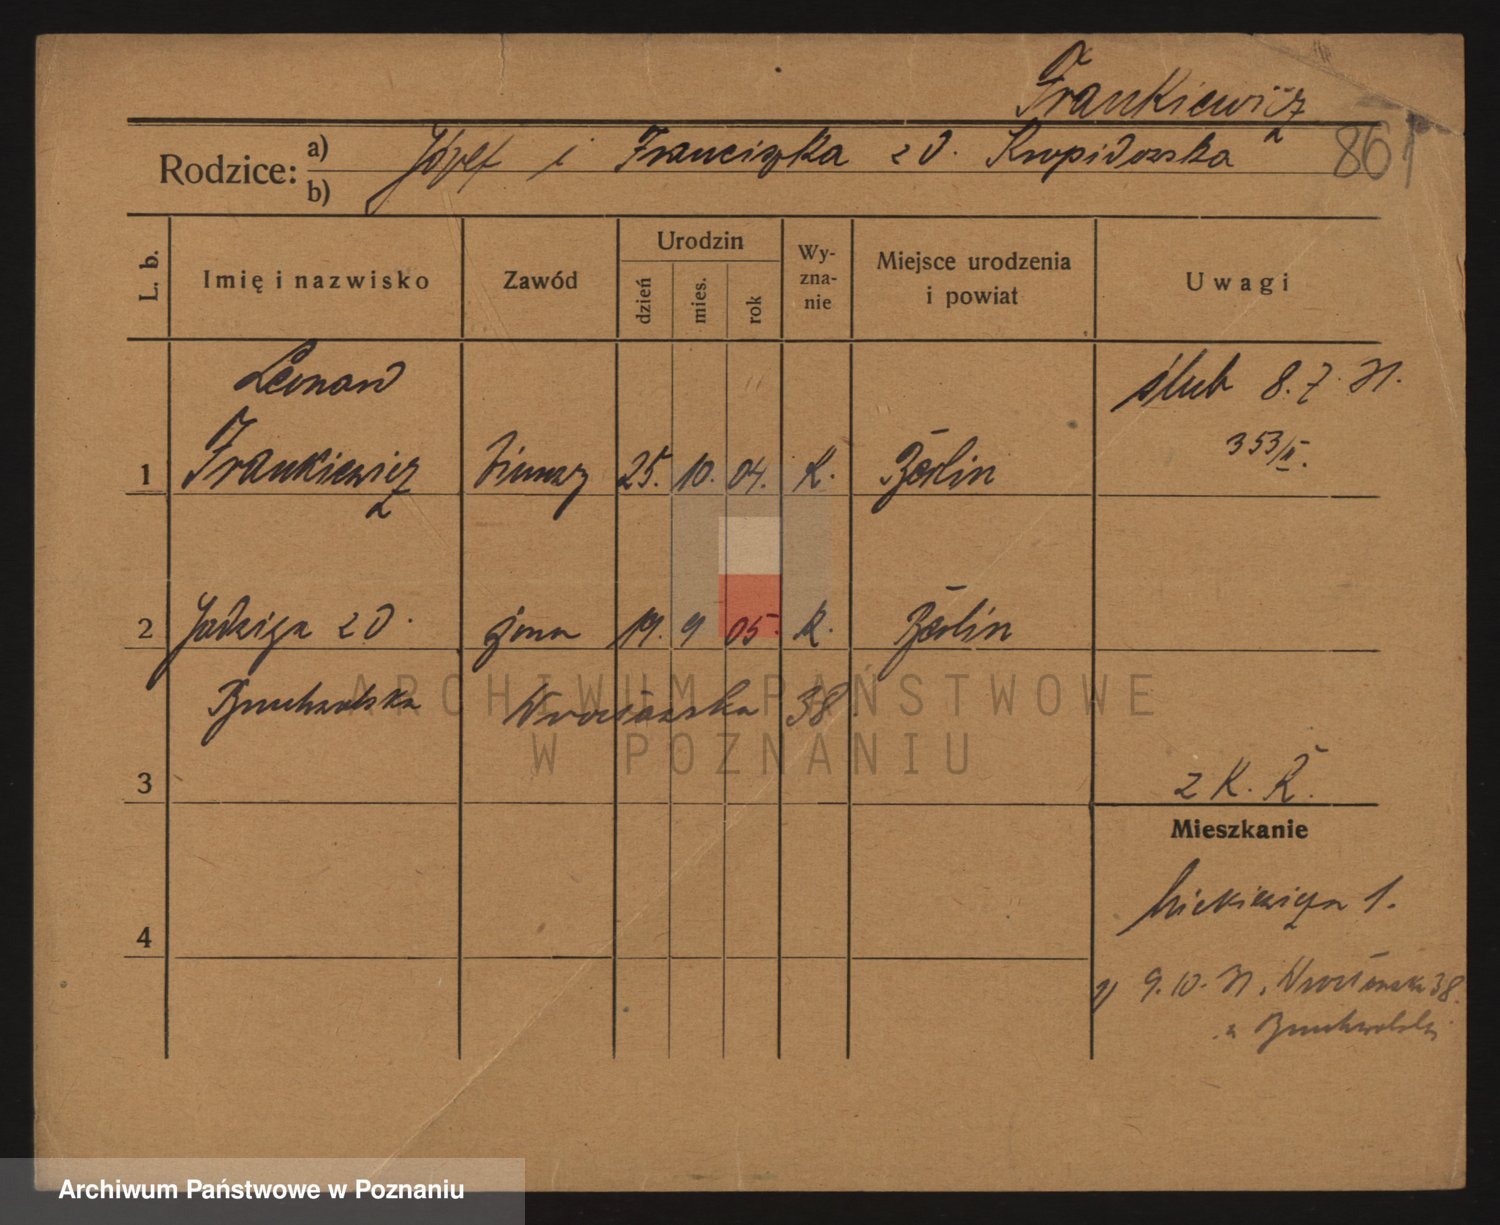 Frankiewicz
861
Rodzice: a) b)
Józef i Franciszka zd. Kropidowska
L. b.
Imię i nazwisko
Zawód
Urodzin
dzień
mies.
rok
Wy-
zna-
nie
Miejsce urodzenia
i powiat
Uwagi
Leonard
1 Frankiewicz 25. 10. 04. K. Berlin
ślub 8. 7. 31.
353/II.
2 Jadwiga zd. żona 19. 9 05. K. Berlin
Wrocławska 38
3
z K. R.
Mieszkanie
4
Mickiewicza 1.
2) 9. 10. 31. Wrocławska 38.
ARCHIWUM PAŃSTWOWE
W POZNANIU
Archiwum Państwowe w Poznaniu